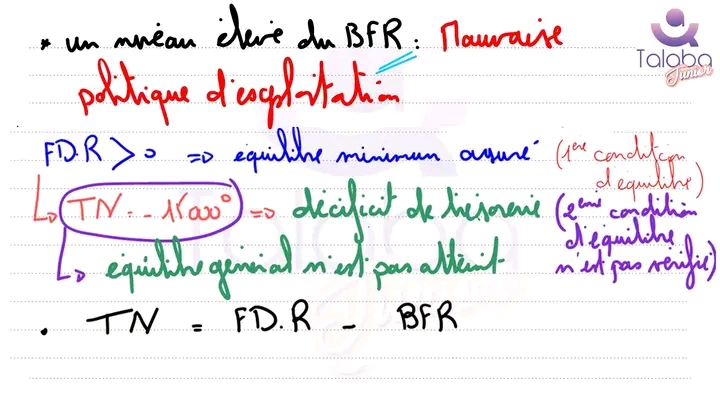 * un niveau élevé du BFR : Mauvaise
Talaba
Junior
politique d'exploitation
FD.R > 0 => équilibre minimum assuré (1ère condition
d'équilibre)
TN = - 15 000 D => déficit de trésorerie (2ème condition
d'équilibre
équilibre général n'est pas atteint n'est pas vérifié)
• TN = FD.R - BFR